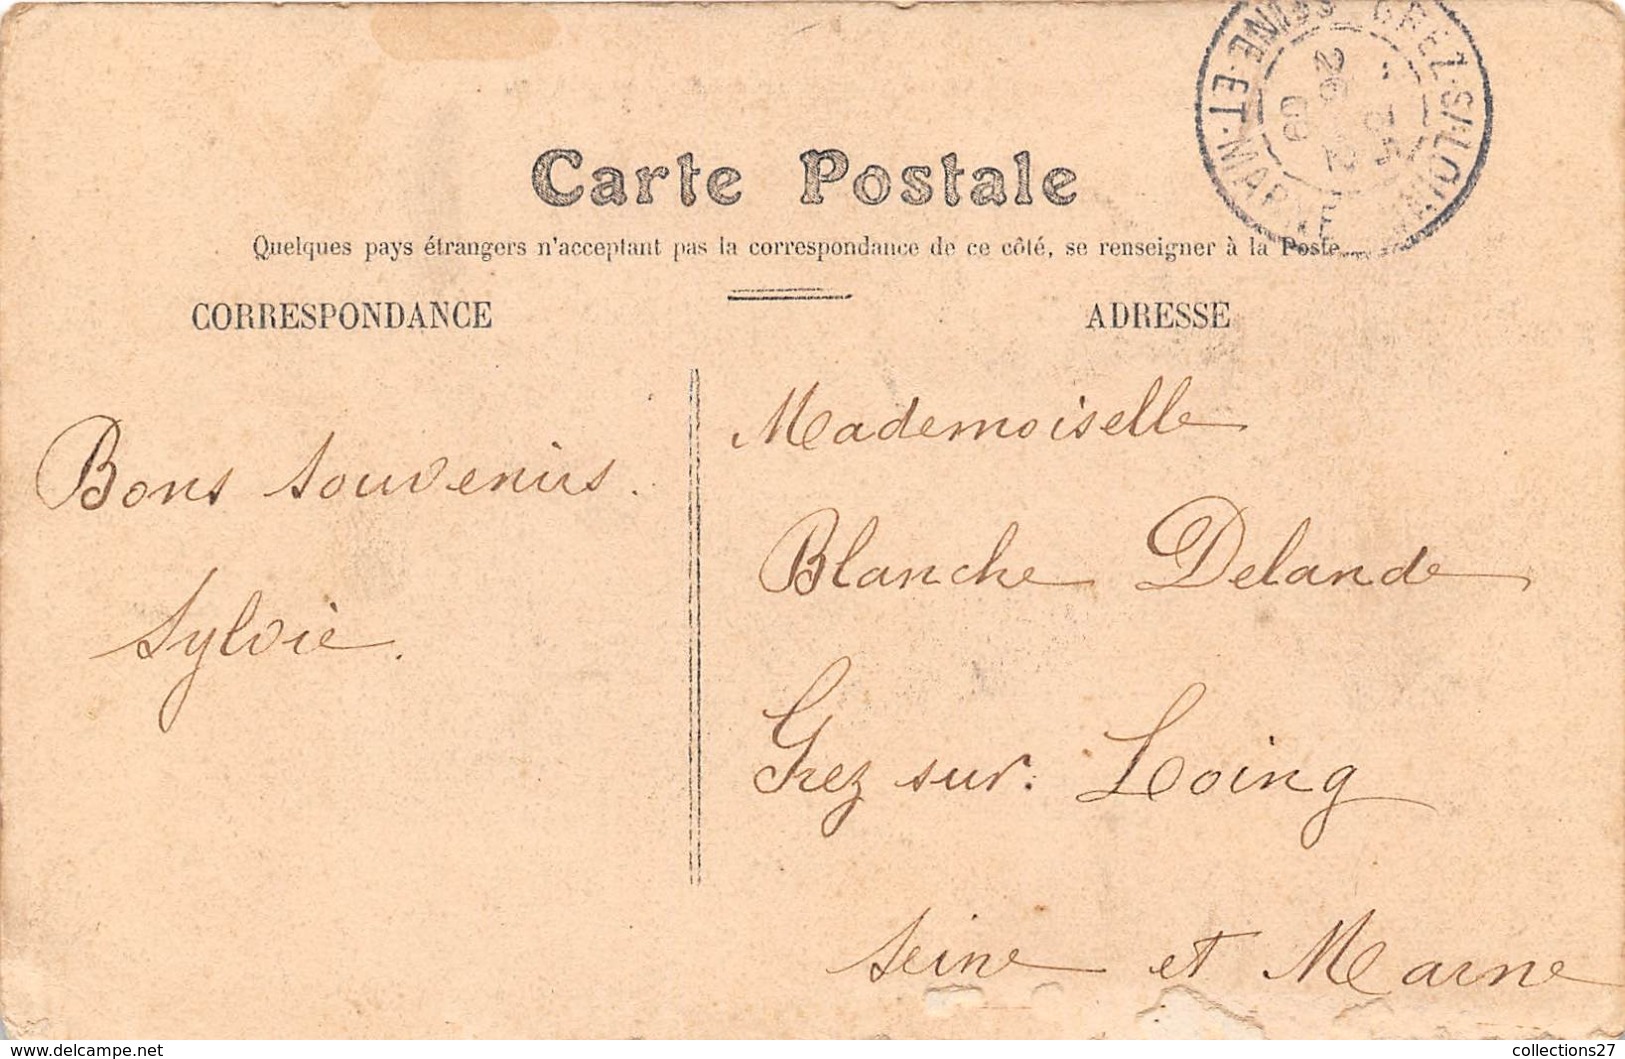 GREZ-S/-LOING
SEINE-ET-MARNE
09
Carte Postale
Quelques pays étrangers n'acceptant pas la correspondance de ce côté, se renseigner à la Poste
CORRESPONDANCE
ADRESSE
Bons souvenirs.
Sylvie.
Mademoiselle
Blanche Delande
Grez sur Loing
Seine et Marne
www.delcampe.net
collections27